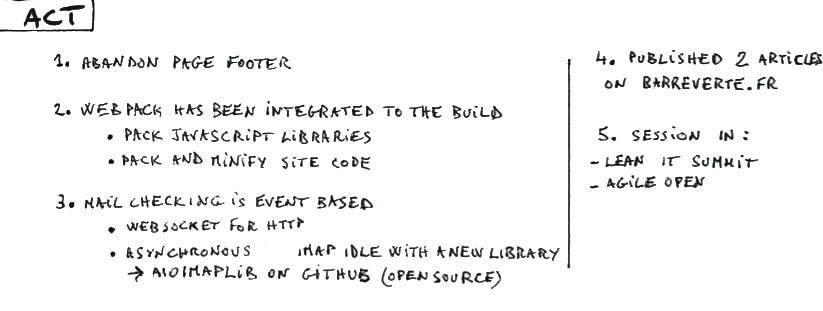 ACT
1. ABANDON PAGE FOOTER
2. WEBPACK HAS BEEN INTEGRATED TO THE BUILD
• PACK JAVASCRIPT LIBRARIES
• PACK AND MINIFY SITE CODE
3. MAIL CHECKING IS EVENT BASED
• WEBSOCKET FOR HTTP
• ASYNCHRONOUS IMAP IDLE WITH A NEW LIBRARY
→ AIOIMAPLIB ON GITHUB (OPEN SOURCE)
4. PUBLISHED 2 ARTICLES
ON BARREVERTE.FR
5. SESSION IN :
- LEAN IT SUMMIT
- AGILE OPEN